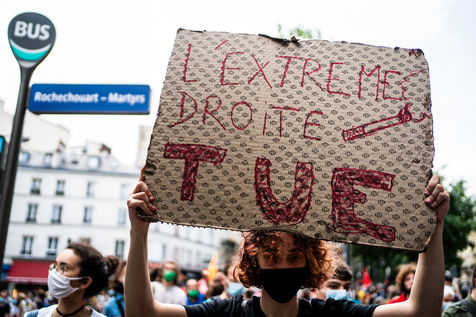 BUS
Rochechouart – Martyrs
L'EXTREME
DROITE
TUE